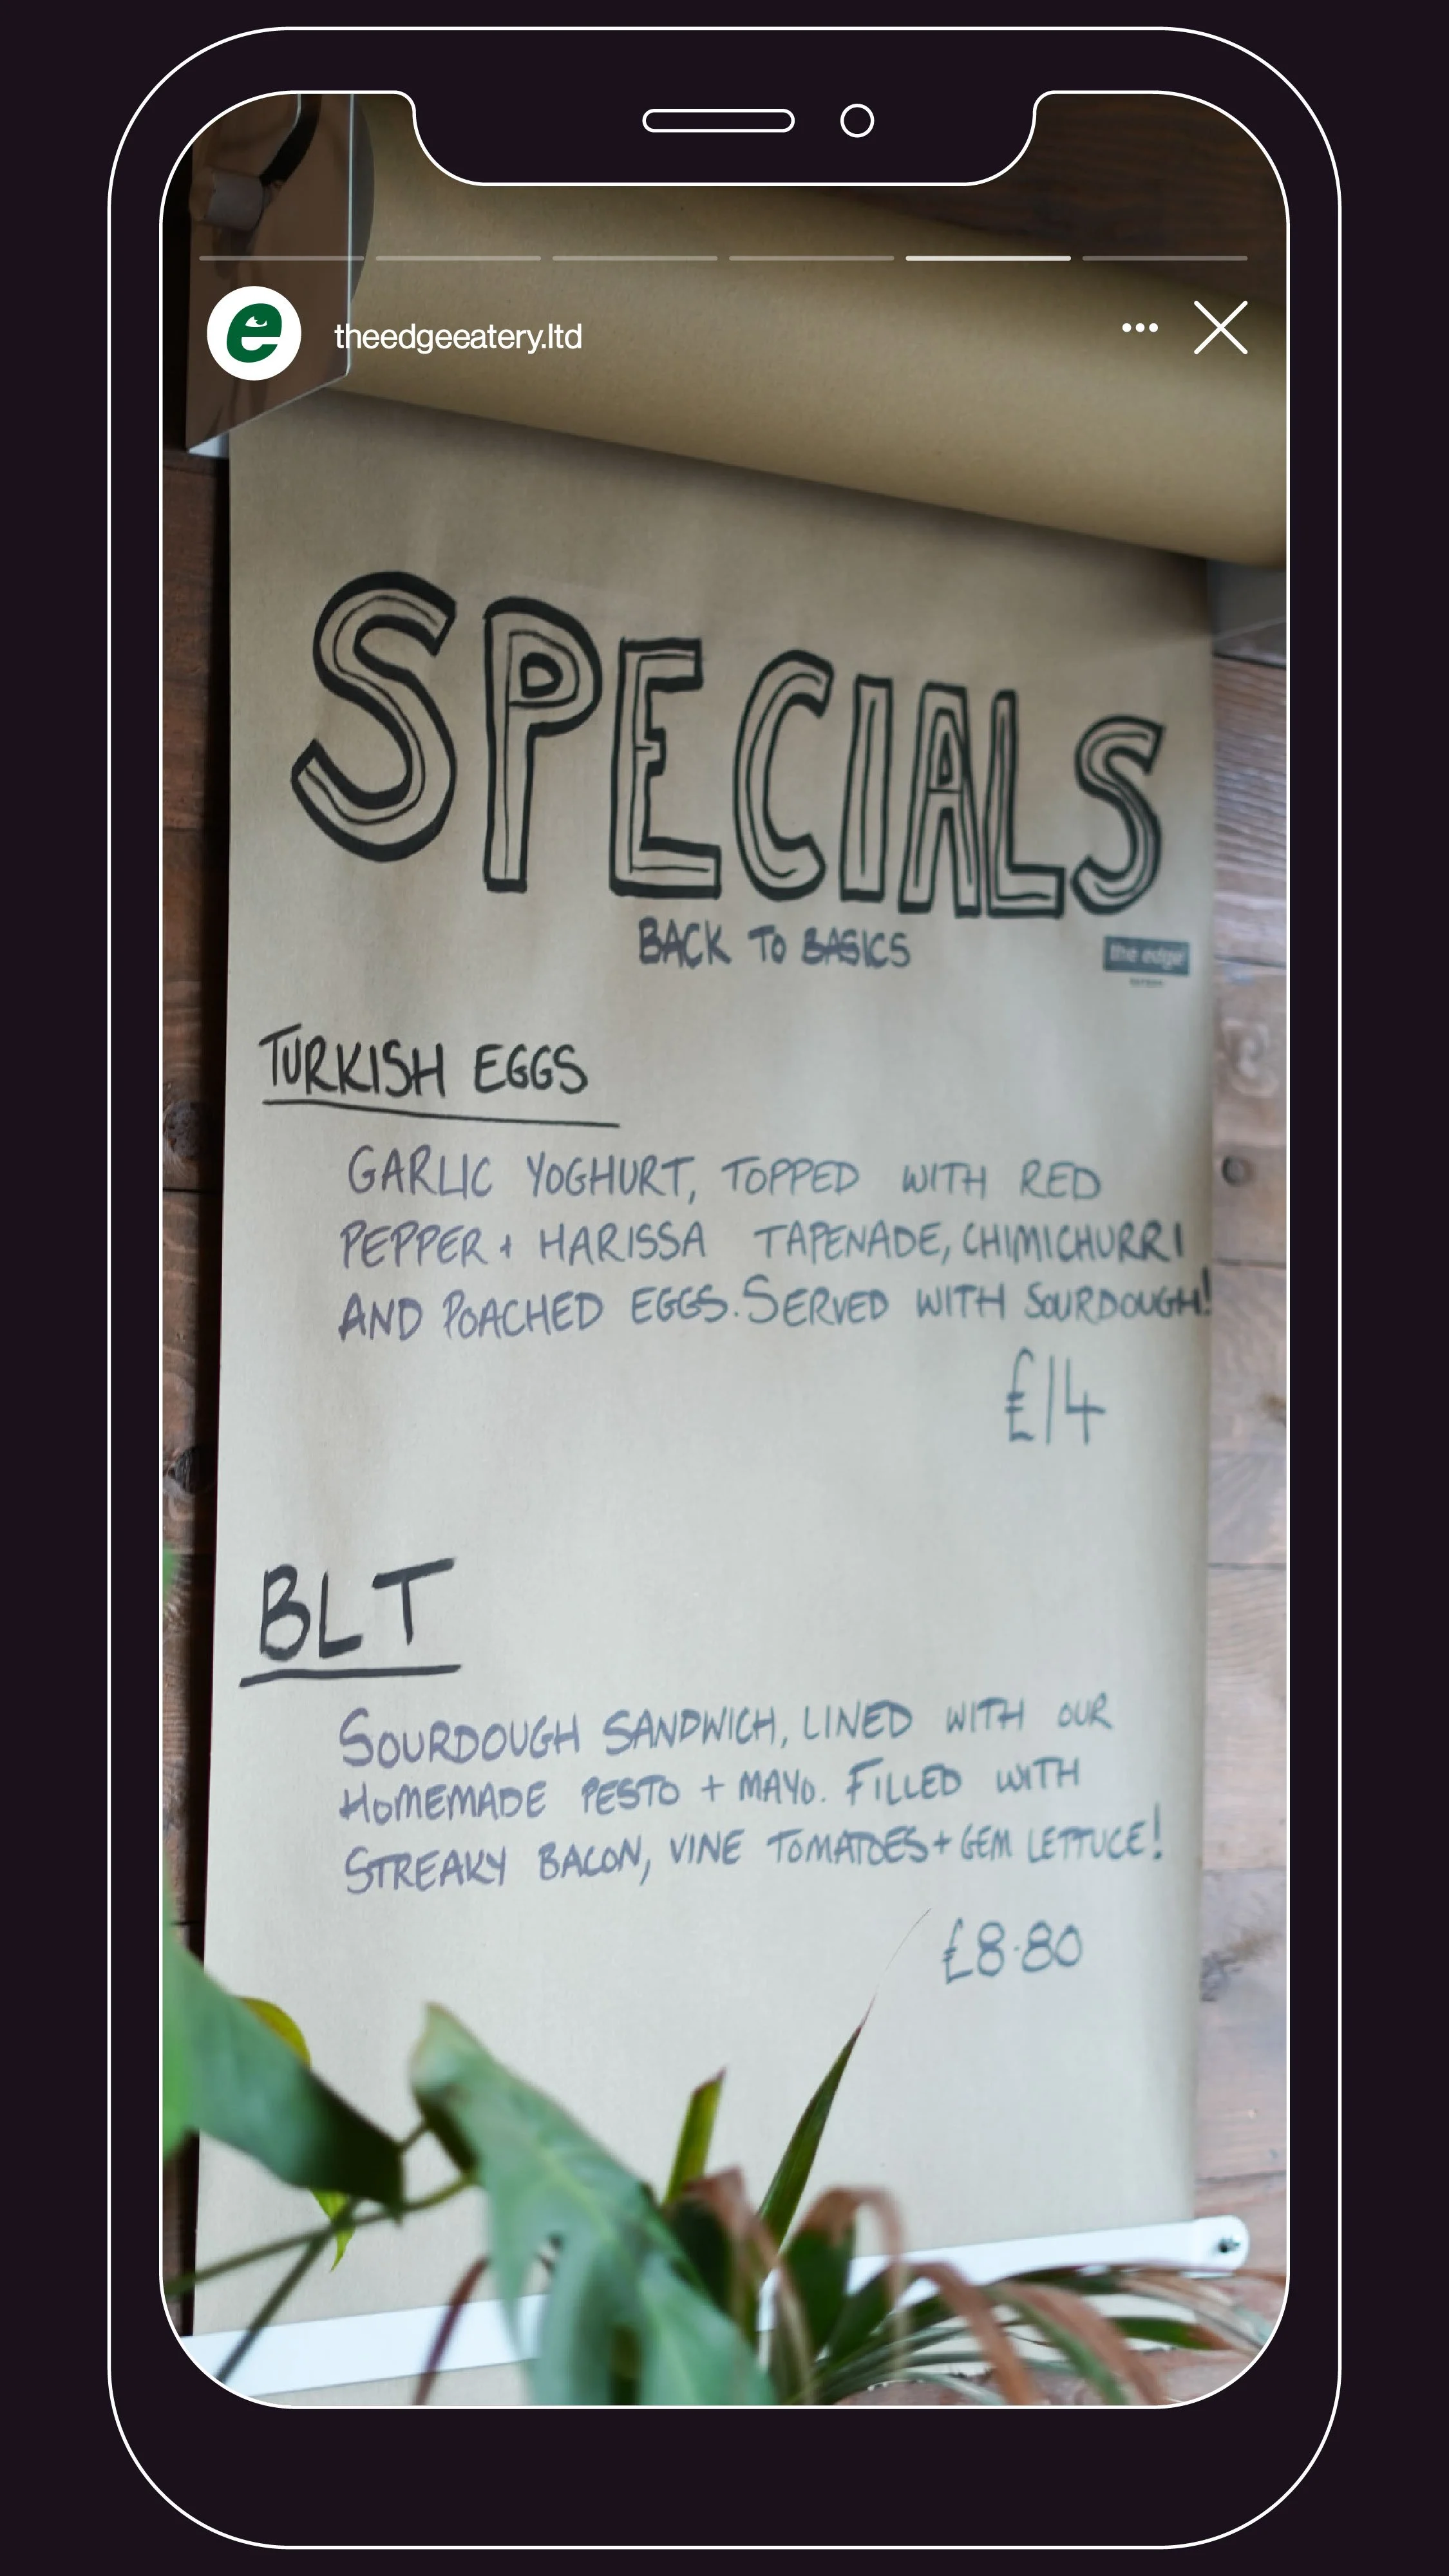 theedgeeatery.ltd
SPECIALS
BACK TO BASICS
the edge
TURKISH EGGS
GARLIC YOGHURT, TOPPED WITH RED
PEPPER + HARISSA TAPENADE, CHIMICHURRI
AND POACHED EGGS. SERVED WITH SOURDOUGH!
£14
BLT
SOURDOUGH SANDWICH, LINED WITH OUR
HOMEMADE PESTO + MAYO. FILLED WITH
STREAKY BACON, VINE TOMATOES + GEM LETTUCE!
£8.80